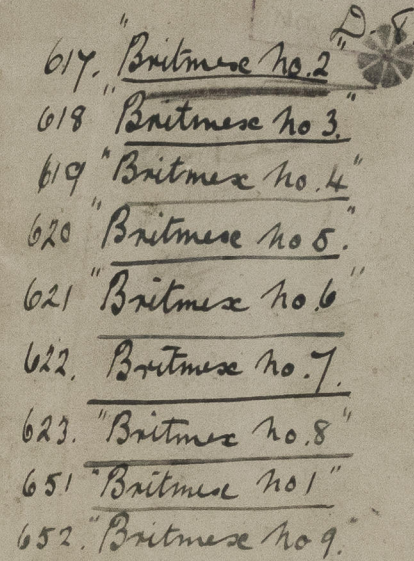 D. 8
617. "Britmex no. 2"
618 "Britmex no 3."
619 "Britmex no. 4"
620 "Britmex no 5."
621 "Britmex no. 6"
622. Britmex no. 7.
623. "Britmex no. 8"
651 "Britmex no 1"
652. "Britmex no 9.